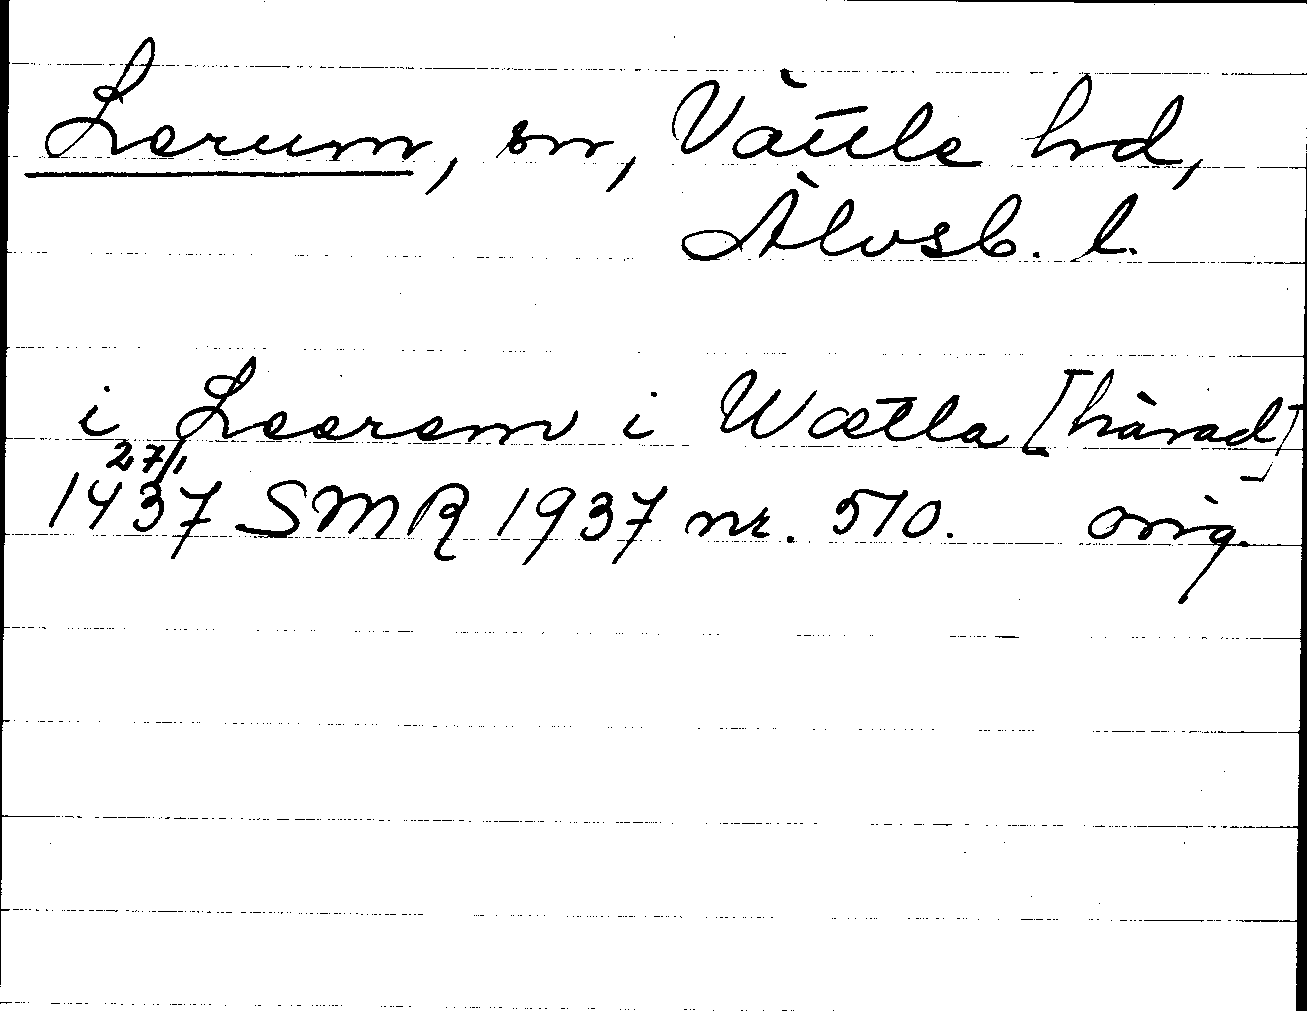 Lerum, sn, Vättle hrd,
Älvsb. l.
i Leerem i Wætla [härad]
27/1
1437 SMR 1937 nr. 510. orig.